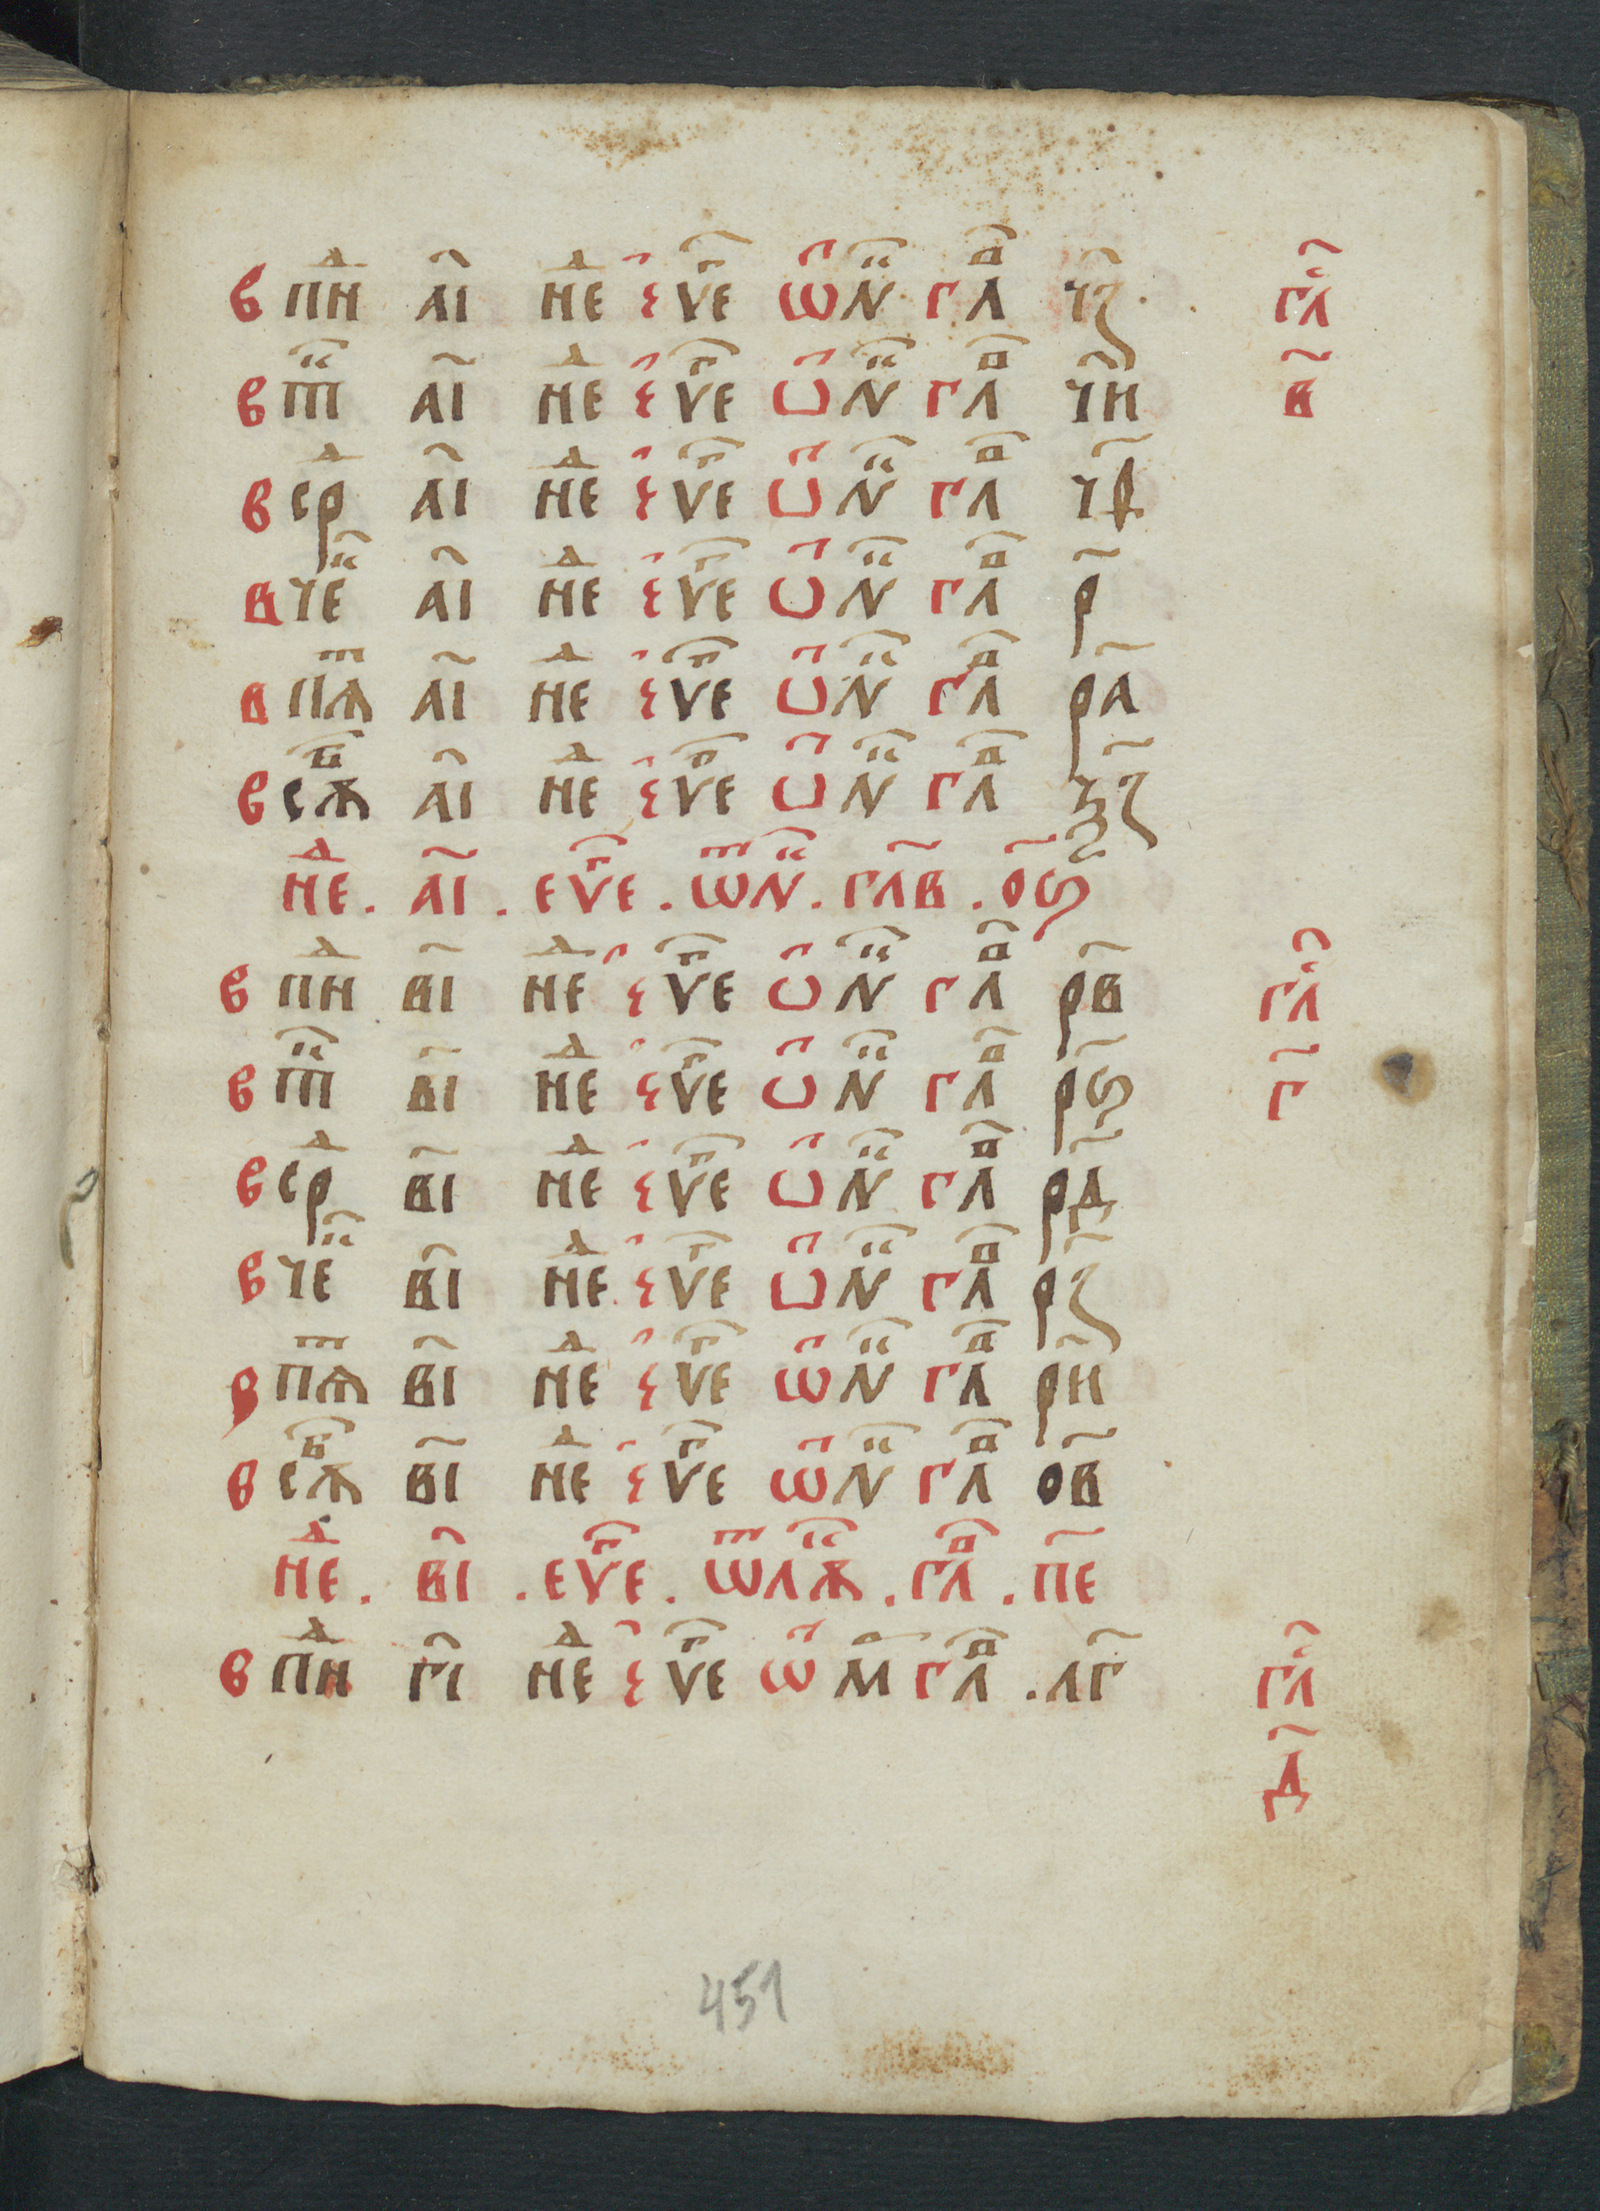 в пнⷣ а҃і неⷣ є҃ ѵеⷢ҇ ѿ лⷦ҇ глⷡ҇ ч҃з гл҃
в тⷦ҇ а҃і неⷣ є҃ ѵеⷢ҇ ѿ лⷦ҇ глⷡ҇ ч҃и в҃
в срⷣ а҃і неⷣ є҃ ѵеⷢ҇ ѿ лⷦ҇ глⷡ҇ ч҃ѳ
в чеⷦ҇ а҃і неⷣ є҃ ѵеⷢ҇ ѿ лⷦ҇ глⷡ҇ р҃
в пѧⷮ а҃і неⷣ є҃ ѵеⷢ҇ ѿ лⷦ҇ глⷡ҇ р҃а
в сѫⷠ҇ а҃і неⷣ є҃ ѵеⷢ҇ ѿ лⷦ҇ глⷡ҇ з҃
неⷣ . а҃і . еѵеⷢ҇ . ѿ лⷦ҇ . глв҃ . о҃ѕ
в пнⷣ в҃і неⷣ є҃ ѵеⷢ҇ ѿ лⷦ҇ глⷡ҇ р҃в гл҃
в тⷦ҇ в҃і неⷣ є҃ ѵеⷢ҇ ѿ лⷦ҇ глⷡ҇ р҃ѕ г҃
в срⷣ в҃і неⷣ є҃ ѵеⷢ҇ ѿ лⷦ҇ глⷡ҇ р҃д
в чеⷦ҇ в҃і неⷣ є҃ ѵеⷢ҇ ѿ лⷦ҇ глⷡ҇ р҃з
в пѧⷮ в҃і неⷣ є҃ ѵеⷢ҇ ѿ лⷦ҇ глⷡ҇ р҃и
в сѫⷠ҇ в҃і неⷣ є҃ ѵеⷢ҇ ѿ лⷦ҇ глⷡ҇ о҃в
неⷣ . в҃і . еѵеⷢ҇ . ѿ лѫⷦ҇ . глⷡ҇ . п҃е
в пнⷣ г҃і неⷣ є҃ ѵеⷢ҇ ѿ м҃ глⷡ҇ . л҃г гл҃
д҃
451